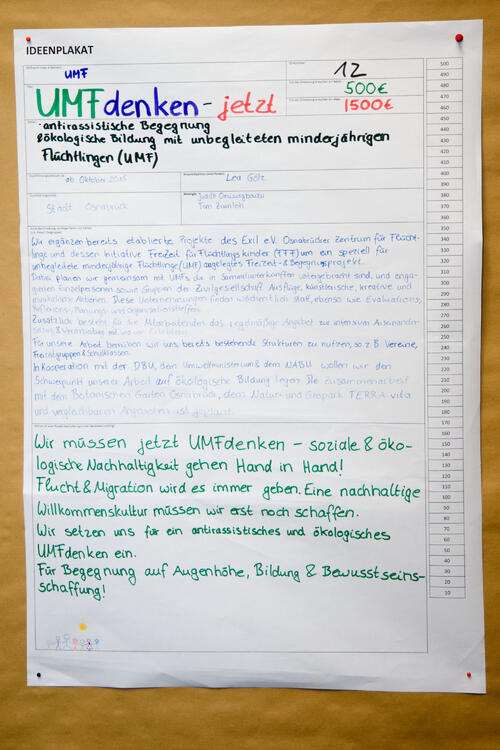 IDEENPLAKAT
UMF
12
500€
UMFdenken - jetzt
1500€
·antirassistische Begegnung
&ökologische Bildung mit unbegleiteten minderjährigen
Flüchtlingen (UMF)
ab Oktober 2015
Lea Götz
Stadt Osnabrück
Judith
Tom Zumloh
Wir ergänzen bereits etablierte Projekte des Exil e.V. Osnabrücker Zentrum für Flücht-
linge und dessen Initiative Freizeit für Flüchtlingskinder (FFF) um ein speziell für
unbegleitete minderjährige Flüchtlinge (UMF) angelegtes Freizeit- & Begegnungsprojekt.
Dabei planen wir gemeinsam mit UMFs, die in Sammelunterkünften untergebracht sind, und enga-
gierten Einzelpersonen sowie Gruppen der Zivilgesellschaft Ausflüge, künstlerische, kreative und
musikalische Aktionen. Diese Unternehmungen finden wöchentlich statt, ebenso wie Evaluations,
Reflexions-, Planungs- und Organisationstreffen.
Zusätzlich besteht für die Mitarbeitenden das regelmäßige Angebot zur intensiven Auseinander-
Für unsere Arbeit bemühen wir uns, bereits bestehende Strukturen zu nutzen, so z.B. Vereine,
Freizeitgruppen & Schulklassen.
In Kooperation mit der DBU, dem Umweltministerium & dem NABU wollen wir den
Schwerpunkt unserer Arbeit auf ökologische Bildung legen. Die Zusammenarbeit
mit dem Botanischen Garten Osnabrück, dem Natur- und Geopark TERRA.vita
und vergleichbaren Angeboten ist geplant.
Wir müssen jetzt UMFdenken – soziale & öko-
logische Nachhaltigkeit gehen Hand in Hand!
Flucht & Migration wird es immer geben. Eine nachhaltige
Willkommenskultur müssen wir erst noch schaffen.
Wir setzen uns für ein antirassistisches und ökologisches
UMFdenken ein.
Für Begegnung auf Augenhöhe, Bildung & Bewusstseins-
schaffung!
500
490
480
470
460
450
440
430
420
410
400
390
380
370
360
350
340
330
320
310
300
290
280
270
260
250
240
230
220
210
200
190
180
170
160
150
140
130
120
110
100
90
80
70
60
50
40
30
20
10